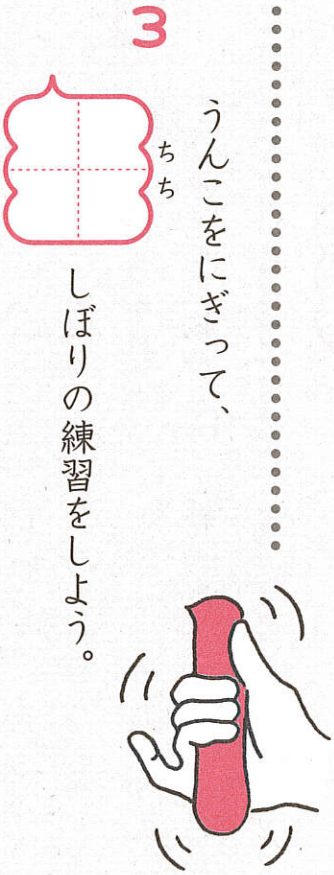 3
うんこをにぎって、
ちち
しぼりの練習をしよう。